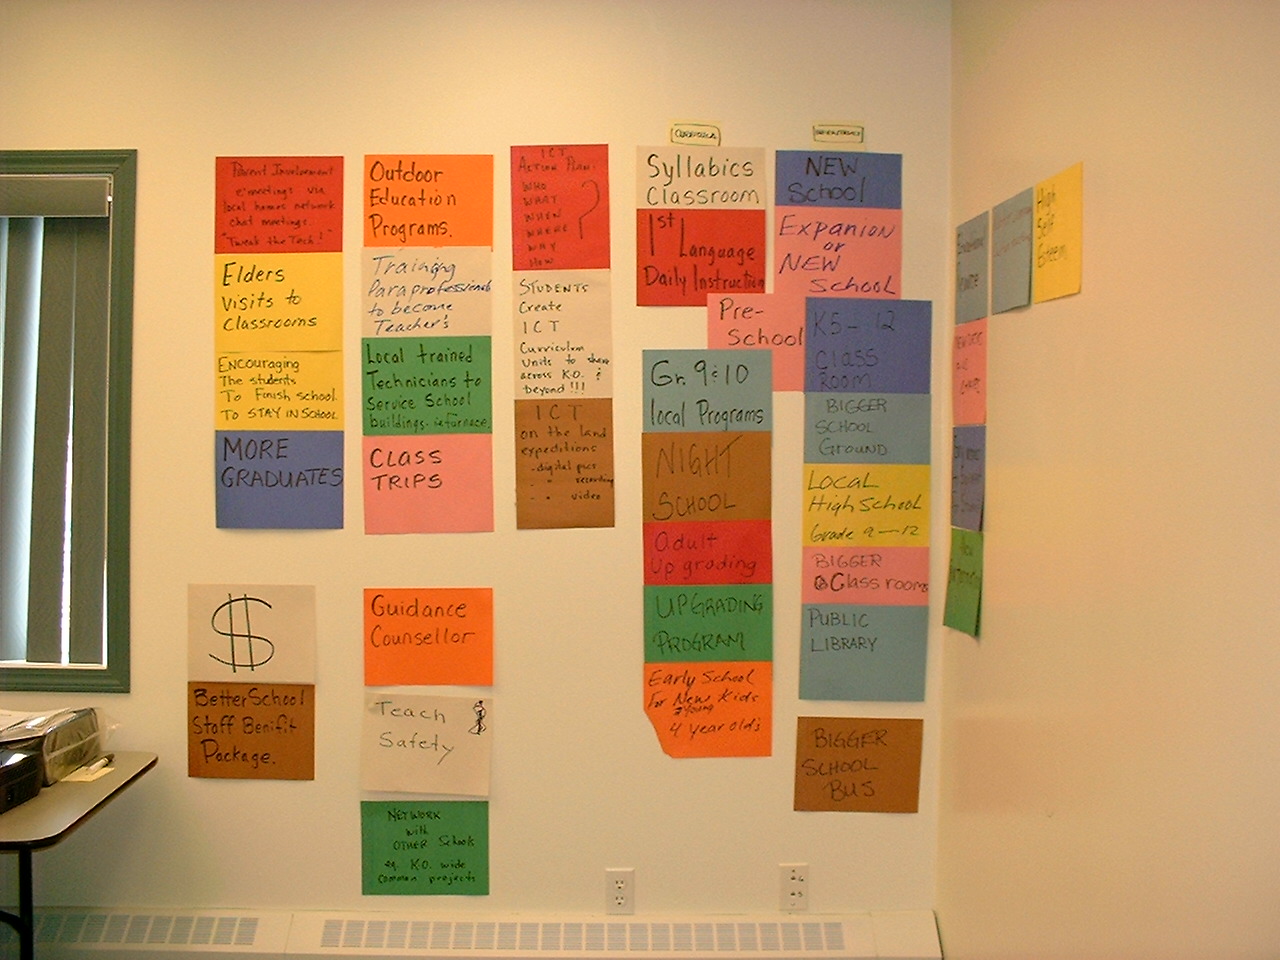 Parent Involvement
e-meetings via
local homes network
chat meetings.
"Tweak the Tech!"
Elders
visits to
classrooms
ENCOURAGING
The students
To Finish school.
To STAY IN SCHOOL
MORE
GRADUATES
$
Better School
Staff Benifit
Package.
Outdoor
Education
Programs.
Training
Paraprofessionals
to become
Teacher's
Local trained
Technicians to
Service School
buildings - ie: furnace.
CLASS
TRIPS
Guidance
Counsellor
Teach
Safety
NETWORK
with
OTHER Schools
eg. K.O. wide
common projects
ICT
ACTION PLAN:
WHO
WHAT
WHEN
WHERE
WHY
HOW
?
STUDENTS
Create
ICT
Curriculum
Units to share
across K.O. &
beyond!!!
ICT
on the land
expeditions
- digital pics
- " recording
- " video
CURRICULA
Syllabics
Classroom
1st Language
Daily Instruction
Pre-
School
Gr. 9 & 10
local Programs
NIGHT
SCHOOL
Adult
Upgrading
UPGRADING
PROGRAM
Early School
For New Kids
Young
4 year old's
NEW
School
Expanion
or
NEW
School
K5 - 12
Class
Room
BIGGER
SCHOOL
GROUND
LOCAL
High School
Grade 9 - 12
BIGGER
Class rooms
PUBLIC
LIBRARY
BIGGER
SCHOOL
BUS
High
Self
Esteem